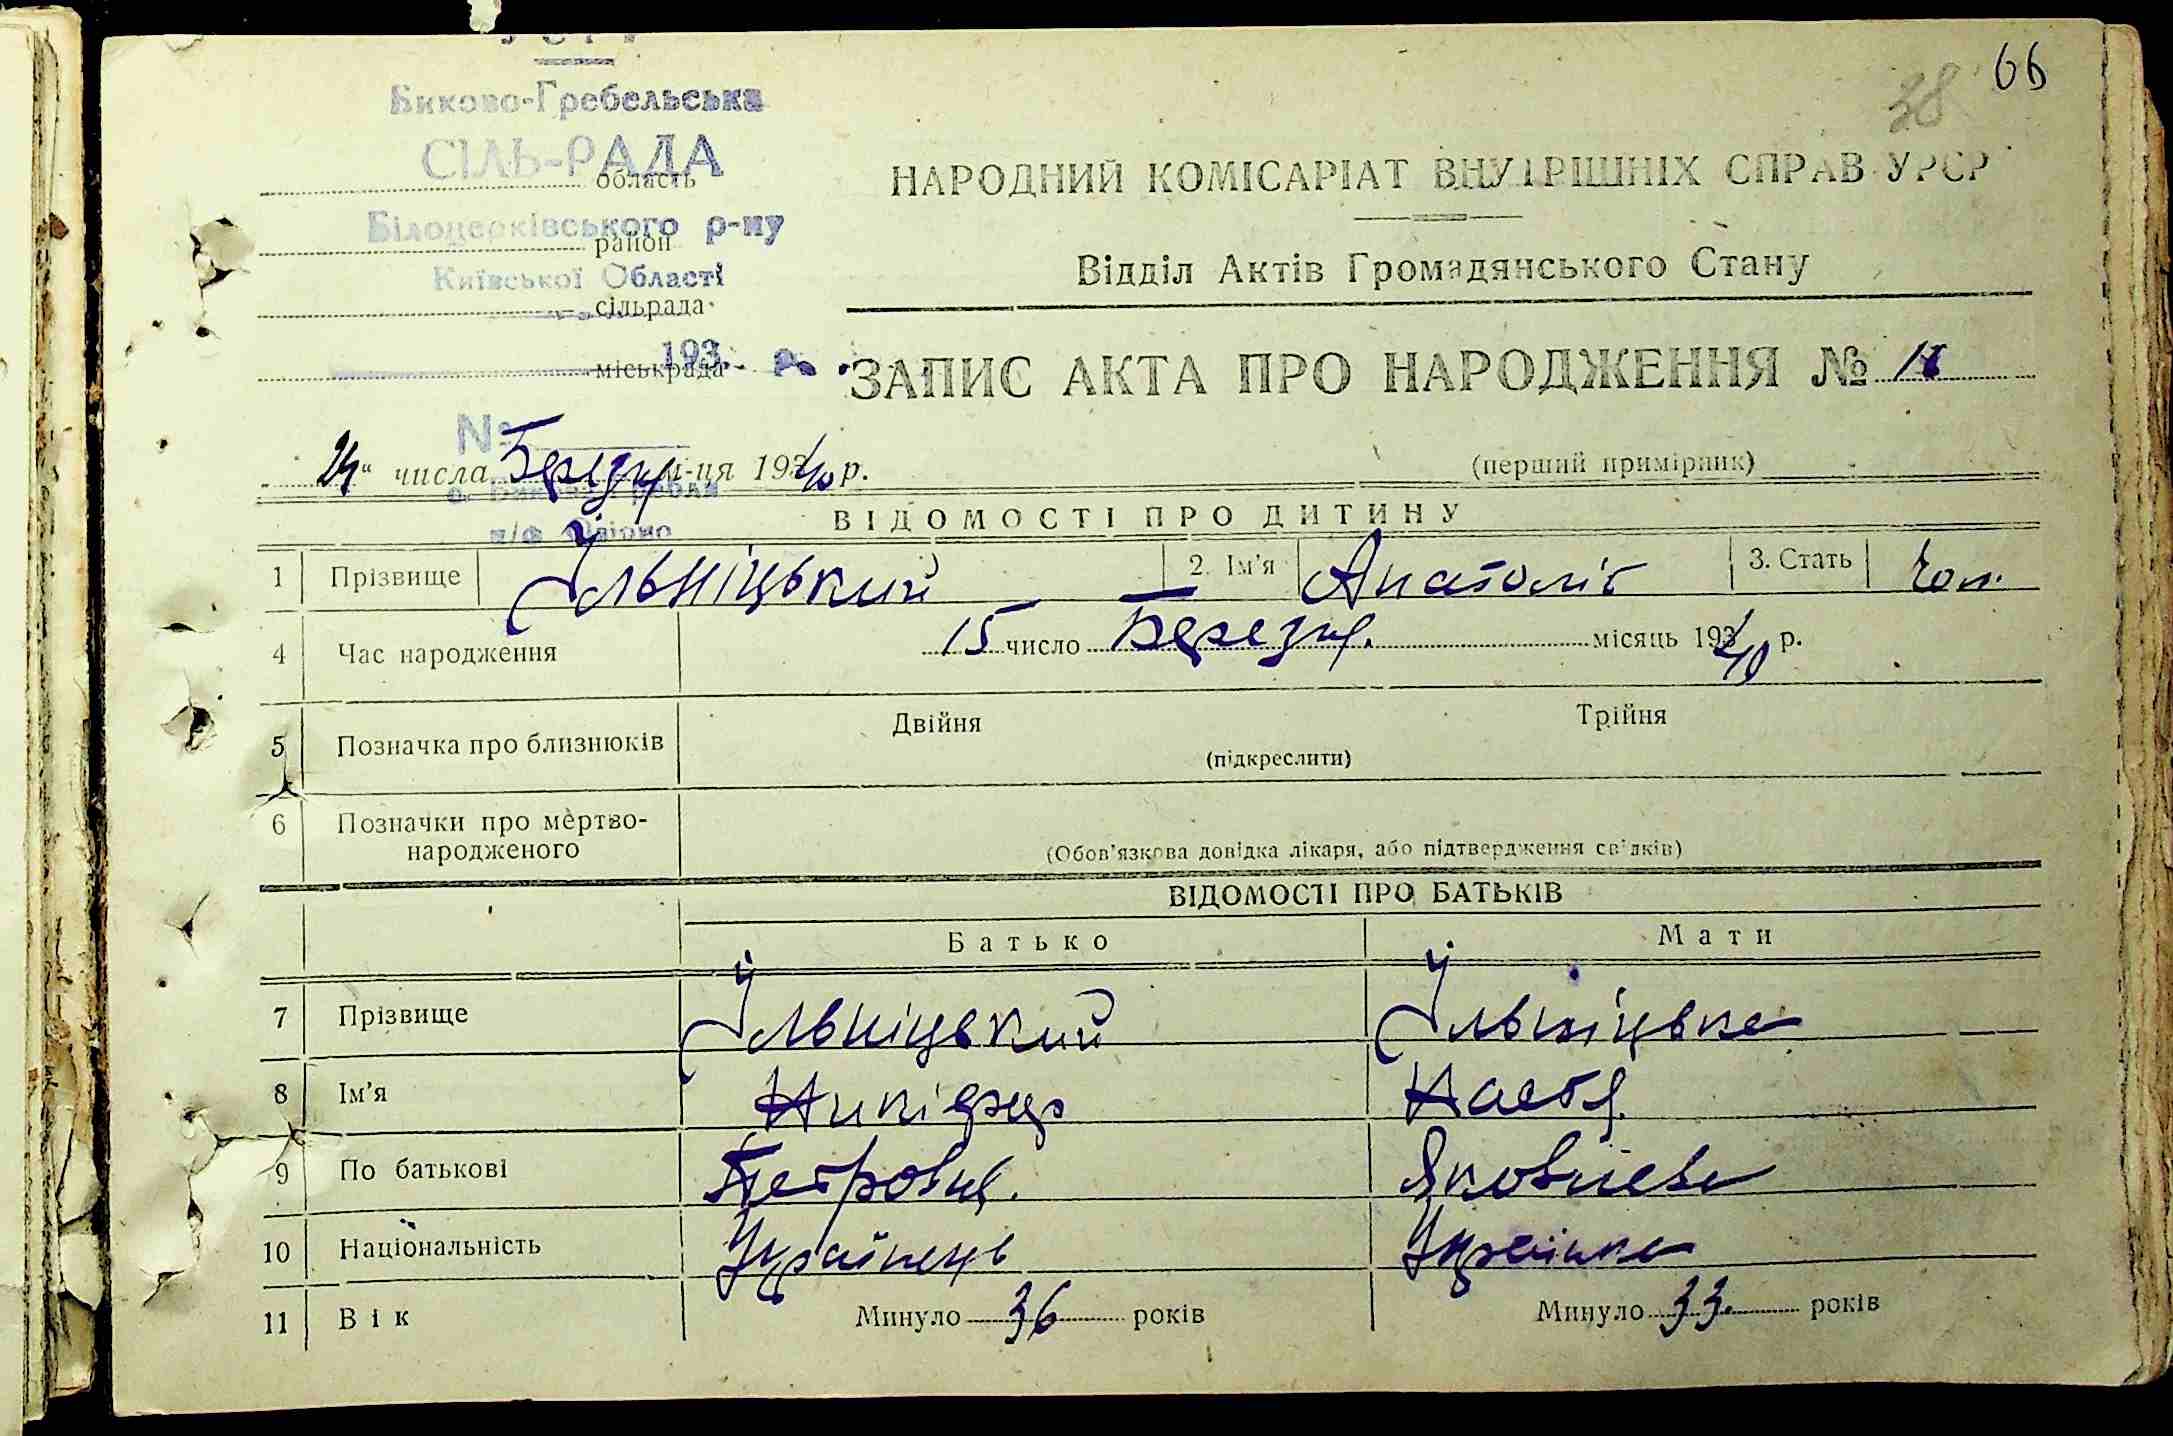 66
38
УСРР
Биково-Гребельська
СІЛЬ-РАДА
область
Білоцерківського р-ну
район
Київської Області
сільрада
193
міськрада
№
НАРОДНИЙ КОМІСАРІАТ ВНУТРІШНІХ СПРАВ УРСР
Відділ Актів Громадянського Стану
ЗАПИС АКТА ПРО НАРОДЖЕННЯ №
(перший примірник)
24 " числа Березня м-ця 1940 р.
ВІДОМОСТІ ПРО ДИТИНУ
1 Прізвище Ільніцький 2. Ім'я Анатоліє 3. Стать Чол.
4 Час народження 15 число Березня місяць 1940 р.
5 Позначка про близнюків Двійня Трійня
(підкреслити)
6 Позначки про мертво-
народженого
(Обов'язкова довідка лікаря, або підтвердження свідків)
ВІДОМОСТІ ПРО БАТЬКІВ
Батько Мати
7 Прізвище Ільніцький Ільніцька
8 Ім'я Настя
9 По батькові Яковлева
10 Національність Українець Українка
11 Вік Минуло 36 років Минуло 33 років